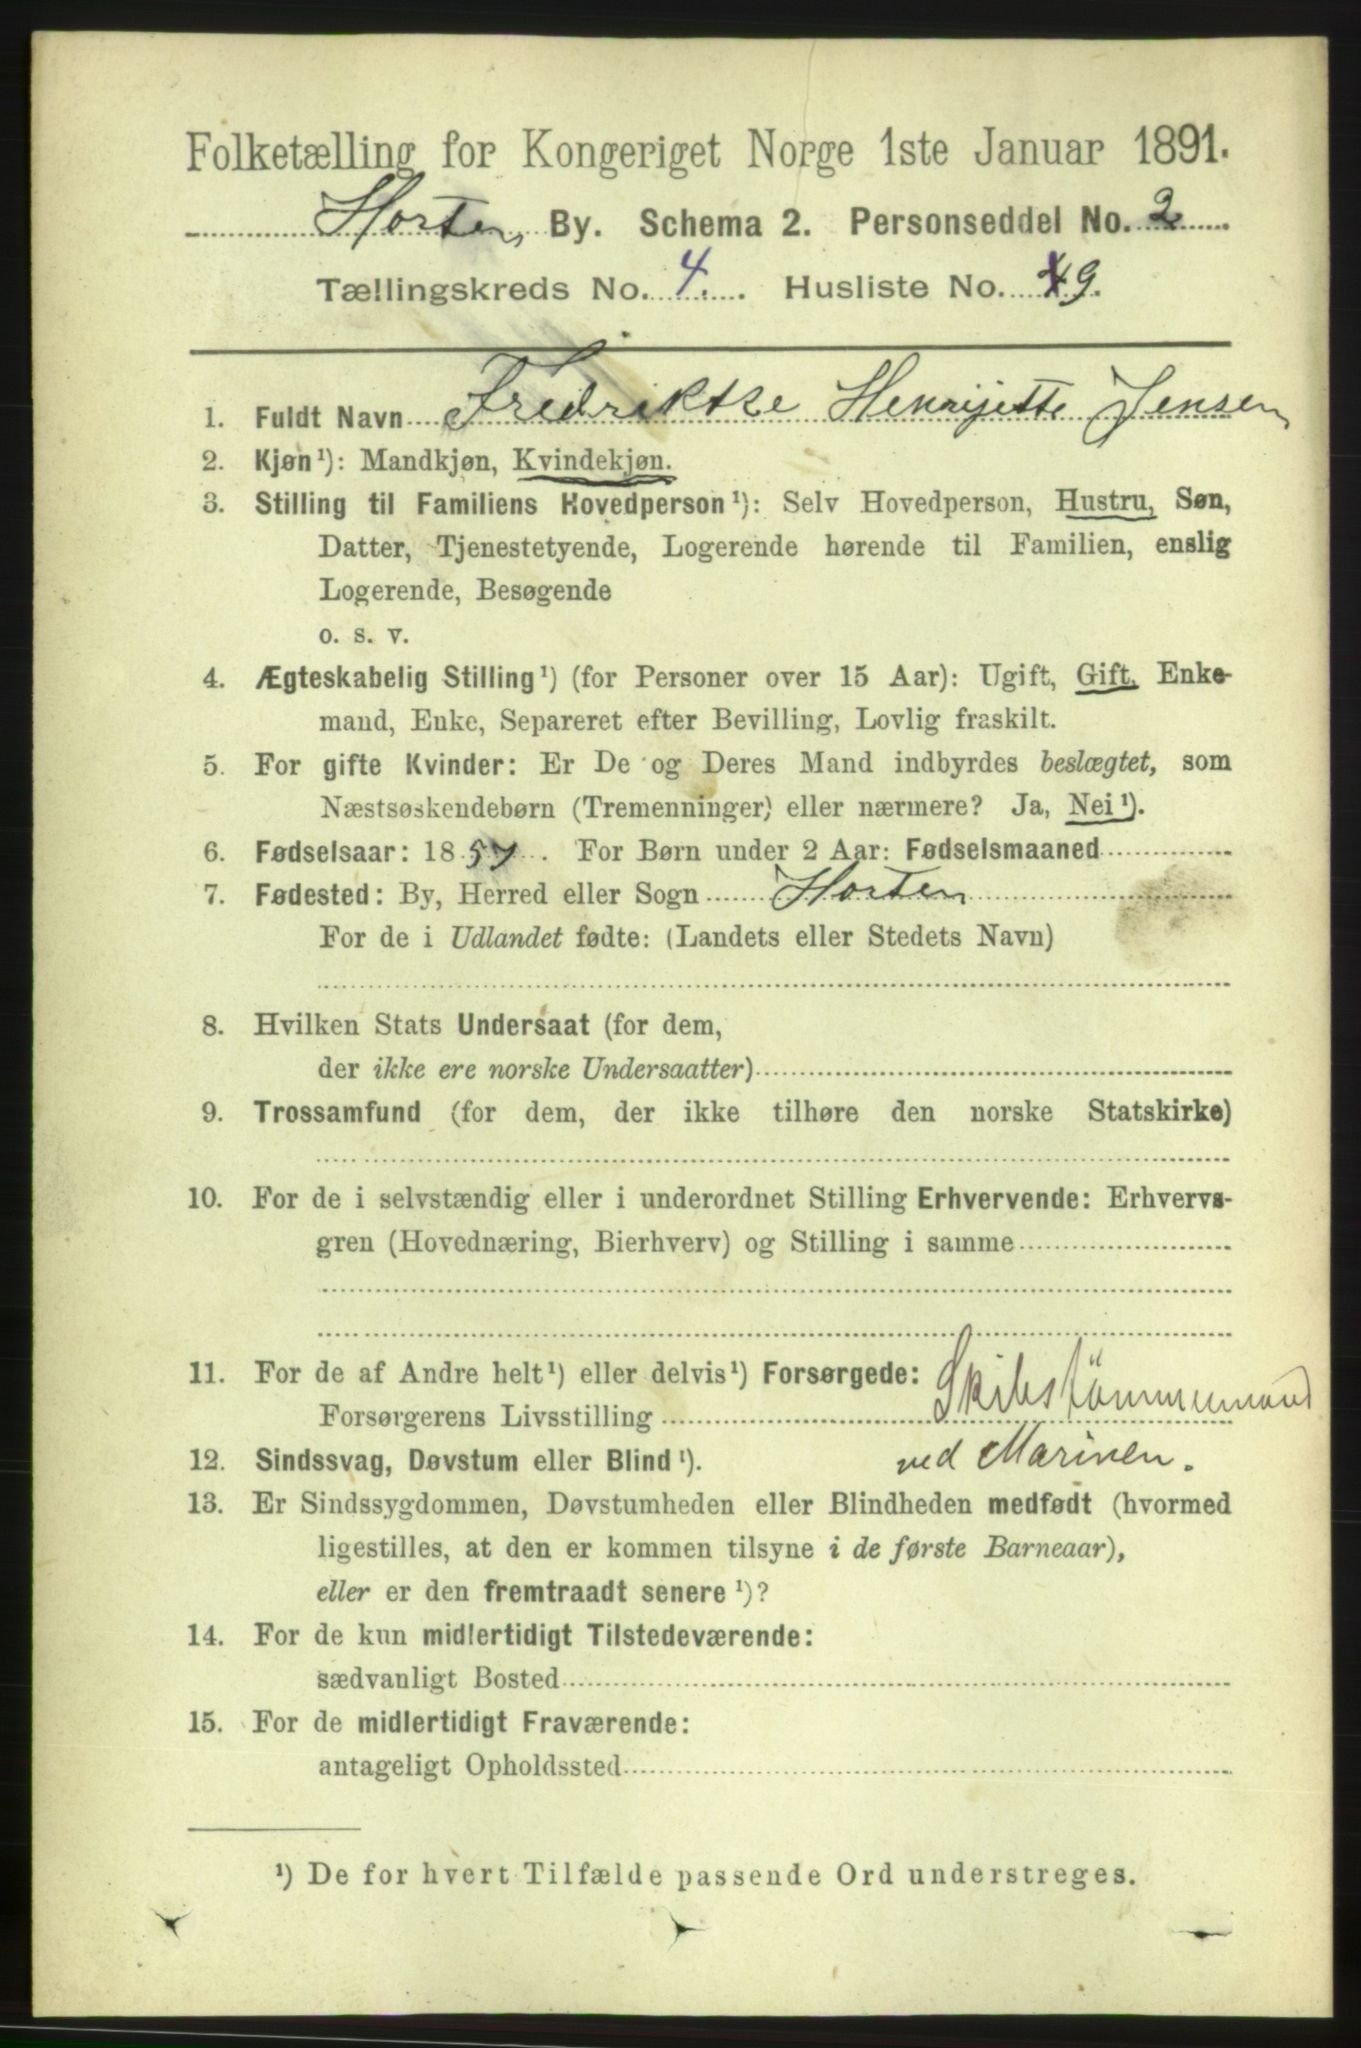 Folketælling for Kongeriget Norge 1ste Januar 1891.
Horten, By. Schema 2. Personseddel No. 2
Tællingskreds No. 4. Husliste No. 49.
1. Fuldt Navn Fredrikke Henrijette Jensen
2. Kjøn¹): Mandkjøn, Kvindekjøn.
3. Stilling til Familiens Hovedperson¹): Selv Hovedperson, Hustru, Søn,
Datter, Tjenestetyende, Logerende hørende til Familien, enslig
Logerende, Besøgende
o. s. v.
4. Ægteskabelig Stilling¹) (for Personer over 15 Aar): Ugift, Gift, Enke-
mand, Enke, Separeret efter Bevilling, Lovlig fraskilt.
5. For gifte Kvinder: Er De og Deres Mand indbyrdes beslægtet, som
Næstsøskendebørn (Tremenninger) eller nærmere? Ja, Nei¹).
6. Fødselsaar: 1857. For Børn under 2 Aar: Fødselsmaaned
7. Fødested: By, Herred eller Sogn Horten
For de i Udlandet fødte: (Landets eller Stedets Navn)
8. Hvilken Stats Undersaat (for dem,
der ikke ere norske Undersaatter)
9. Trossamfund (for dem, der ikke tilhøre den norske Statskirke)
10. For de i selvstændig eller i underordnet Stilling Erhvervende: Erhvervs-
gren (Hovednæring, Bierhverv) og Stilling i samme
11. For de af Andre helt¹) eller delvis¹) Forsørgede:
Forsørgerens Livsstilling Skibstömmermand
12. Sindssvag, Døvstum eller Blind¹). ved Marinen.
13. Er Sindssygdommen, Døvstumheden eller Blindheden medfødt (hvormed
ligestilles, at den er kommen tilsyne i de første Barneaar),
eller er den fremtraadt senere¹)?
14. For de kun midlertidigt Tilstedeværende:
sædvanligt Bosted
15. For de midlertidigt Fraværende:
antageligt Opholdssted
¹) De for hvert Tilfælde passende Ord understreges.